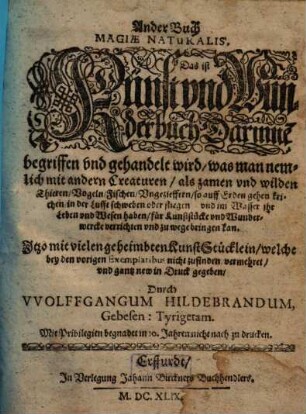 Ander Buch
MAGIÆ NATURALIS,
Das ist
Kunst vnd Wun
derbuch Darinne
begriffen vnd gehandelt wird/ was man nem-
lich mit andern Creaturen/ als zamen vnd wilden
Thieren/ Vogeln/ Fischen/ Vngezieffern/ so auff Erden gehen krie-
chen/ in der Lufft schweben oder fliegen vnd im Wasser ihr
Leben vnd Wesen haben/ für Kunststücke vnd Wunder-
wercke verrichten vnd zu wege bringen kan.
Itzo mit vielen geheimbten Kunst Stücklein/ welche
bey den vorigen Exemplaribus nicht zufinden vermehret/
vnd gantz new in Druck gegeben/
Durch
VVOLFFGANGUM HILDEBRANDUM,
Gebesen: Tyrigetam.
Mit Privilegien begnadet in 10. Jahren nicht nach zu drucken.
Erffurdt/
In Verlegung Johann Birckners Buchhendlers.
M. DC. XLIX.